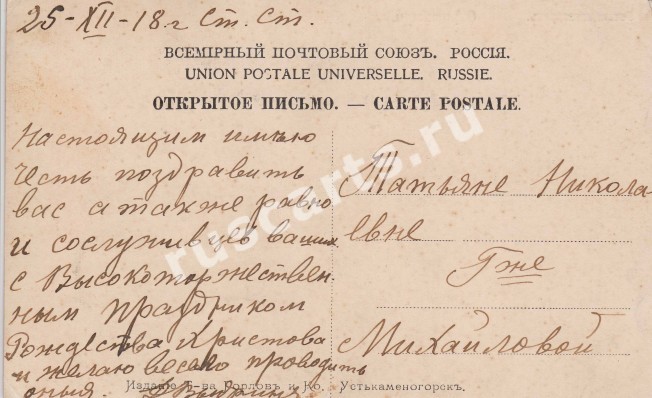 25-XII-18 г Ст. Ст.
ВСЕМІРНЫЙ ПОЧТОВЫЙ СОЮЗЪ. РОССІЯ.
UNION POSTALE UNIVERSELLE. RUSSIE.
ОТКРЫТОЕ ПИСЬМО. — CARTE POSTALE.
Настоящим имѣю
честь поздравить
вас а также равно
и сослуживцев ваших
с Высокоторжествен-
ным праздником
Рождества Христова
и желаю весело проводить
оныя.
Татьяне Никола-
евне
Гже
Михайловой
Изданіе Т-ва Горловъ и Ко. Устькаменогорскъ.
ruscarts.ru